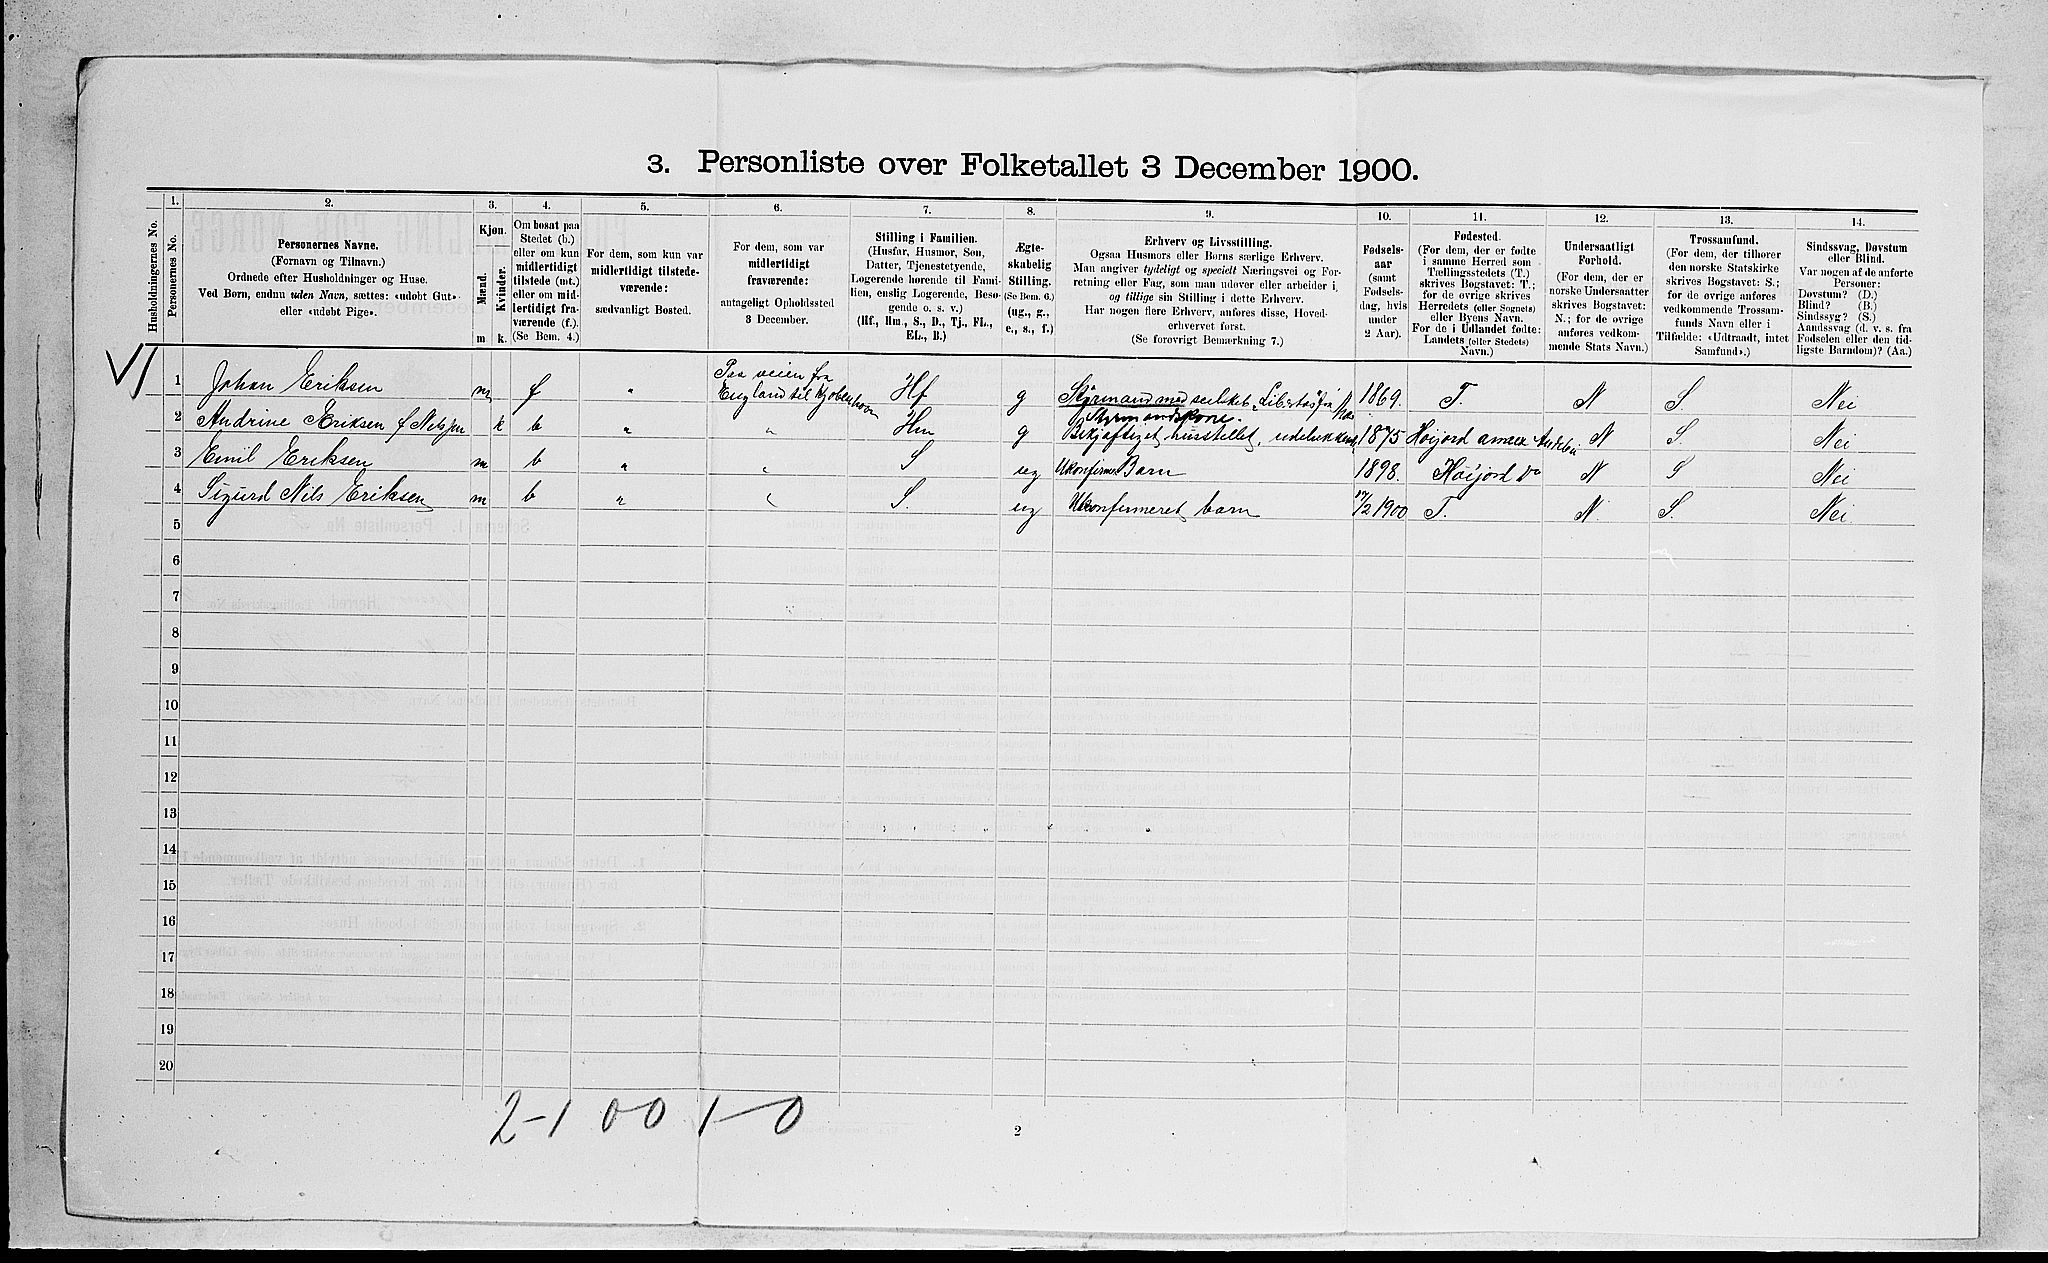 3. Personliste over Folketallet 3 December 1900.
Husholdningernes No.
1.
Personernes No.
2.
Personernes Navne.
(Fornavn og Tilnavn.)
Ordnede efter Husholdninger og Huse.
Ved Børn, endnu uden Navn, sættes: «udøbt Gut»
eller «udøbt Pige».
3.
Kjøn.
Mænd.
Kvinder.
m k.
4.
Om bosat paa
Stedet (b.)
eller om kun
midlertidigt
tilstede (mt.)
eller om mid-
lertidigt fra-
værende (f.).
(Se Bem. 4.)
5.
For dem, som kun var
midlertidigt tilstede-
værende:
sædvanligt Bosted.
6.
For dem, som var
midlertidigt
fraværende:
antageligt Opholdssted
3 December.
7.
Stilling i Familien.
(Husfar, Husmor, Søn,
Datter, Tjenestetyende,
Logerende hørende til Fami-
lien, enslig Logerende, Besø-
gende o. s. v.)
(Hf., Hm., S., D., Tj., FL.,
EL., B.)
8.
Ægte-
skabelig
Stilling.
(Se Bem. 6.)
(ug., g.,
e., s., f.)
9.
Erhverv og Livsstilling.
Ogsaa Husmors eller Børns særlige Erhverv.
Man angiver tydeligt og specielt Næringsvei og For-
retning eller Fag, som man udøver eller arbeider i,
og tillige sin Stilling i dette Erhverv.
Har nogen flere Erhverv, anføres disse, Hoved-
erhvervet først.
(Se forøvrigt Bemærkning 7.)
10.
Fødsels-
aar
(samt
Fødsels-
dag, hvis
under
2 Aar).
11.
Fødested.
(For dem, der er fødte
i samme Herred som
Tællingsstedets (T.)
skrives Bogstavet: T.;
for de øvrige skrives
Herredets (eller Sognets)
eller Byens Navn.
For de i Udlandet fødte:
Landets (eller Stedets)
Navn.)
12.
Undersaatligt
Forhold.
(For dem, der er
norske Undersaatter
skrives Bogstavet:
N.; for de øvrige
anføres vedkom-
mende Stats Navn.)
13.
Trossamfund.
(For dem, der tilhører
den norske Statskirke
skrives Bogstavet: S.;
for de øvrige anføres
vedkommende Trossam-
funds Navn eller i
Tilfælde: «Udtraadt, intet
Samfund».)
14.
Sindssvag, Døvstum
eller Blind.
Var nogen af de anførte
Personer:
Døvstum? (D.)
Blind? (B.)
Sindssyg? (S.)
Aandssvag (d. v. s. fra
Fødselen eller den tid-
ligste Barndom)? (Aa.)
1 Johan Eriksen m f " Paa veien fra England til Kjøbenhavn Hf g Styrmand med seilskib „Libertas“ fra 1869. T. N S. Nei
2 Andrine Eriksen f Nilsen k b " " Hm g Styrmandskone. Beskjæftiget husstellet, udelukkende 1875 Høijord annex Andebu N S. Nei
3 Emil Eriksen m b " " S ug Ukonfirmer Barn 1898. Høijord Do N S Nei
4 Sigurd Nils Eriksen m b " " S. ug Ukonfirmeret barn 17/2 1900 T. N. S. Nei
5
6
7
8
9
10
11
12
13
14
15
16
17
18
19
20
2-1 00 1-0
2